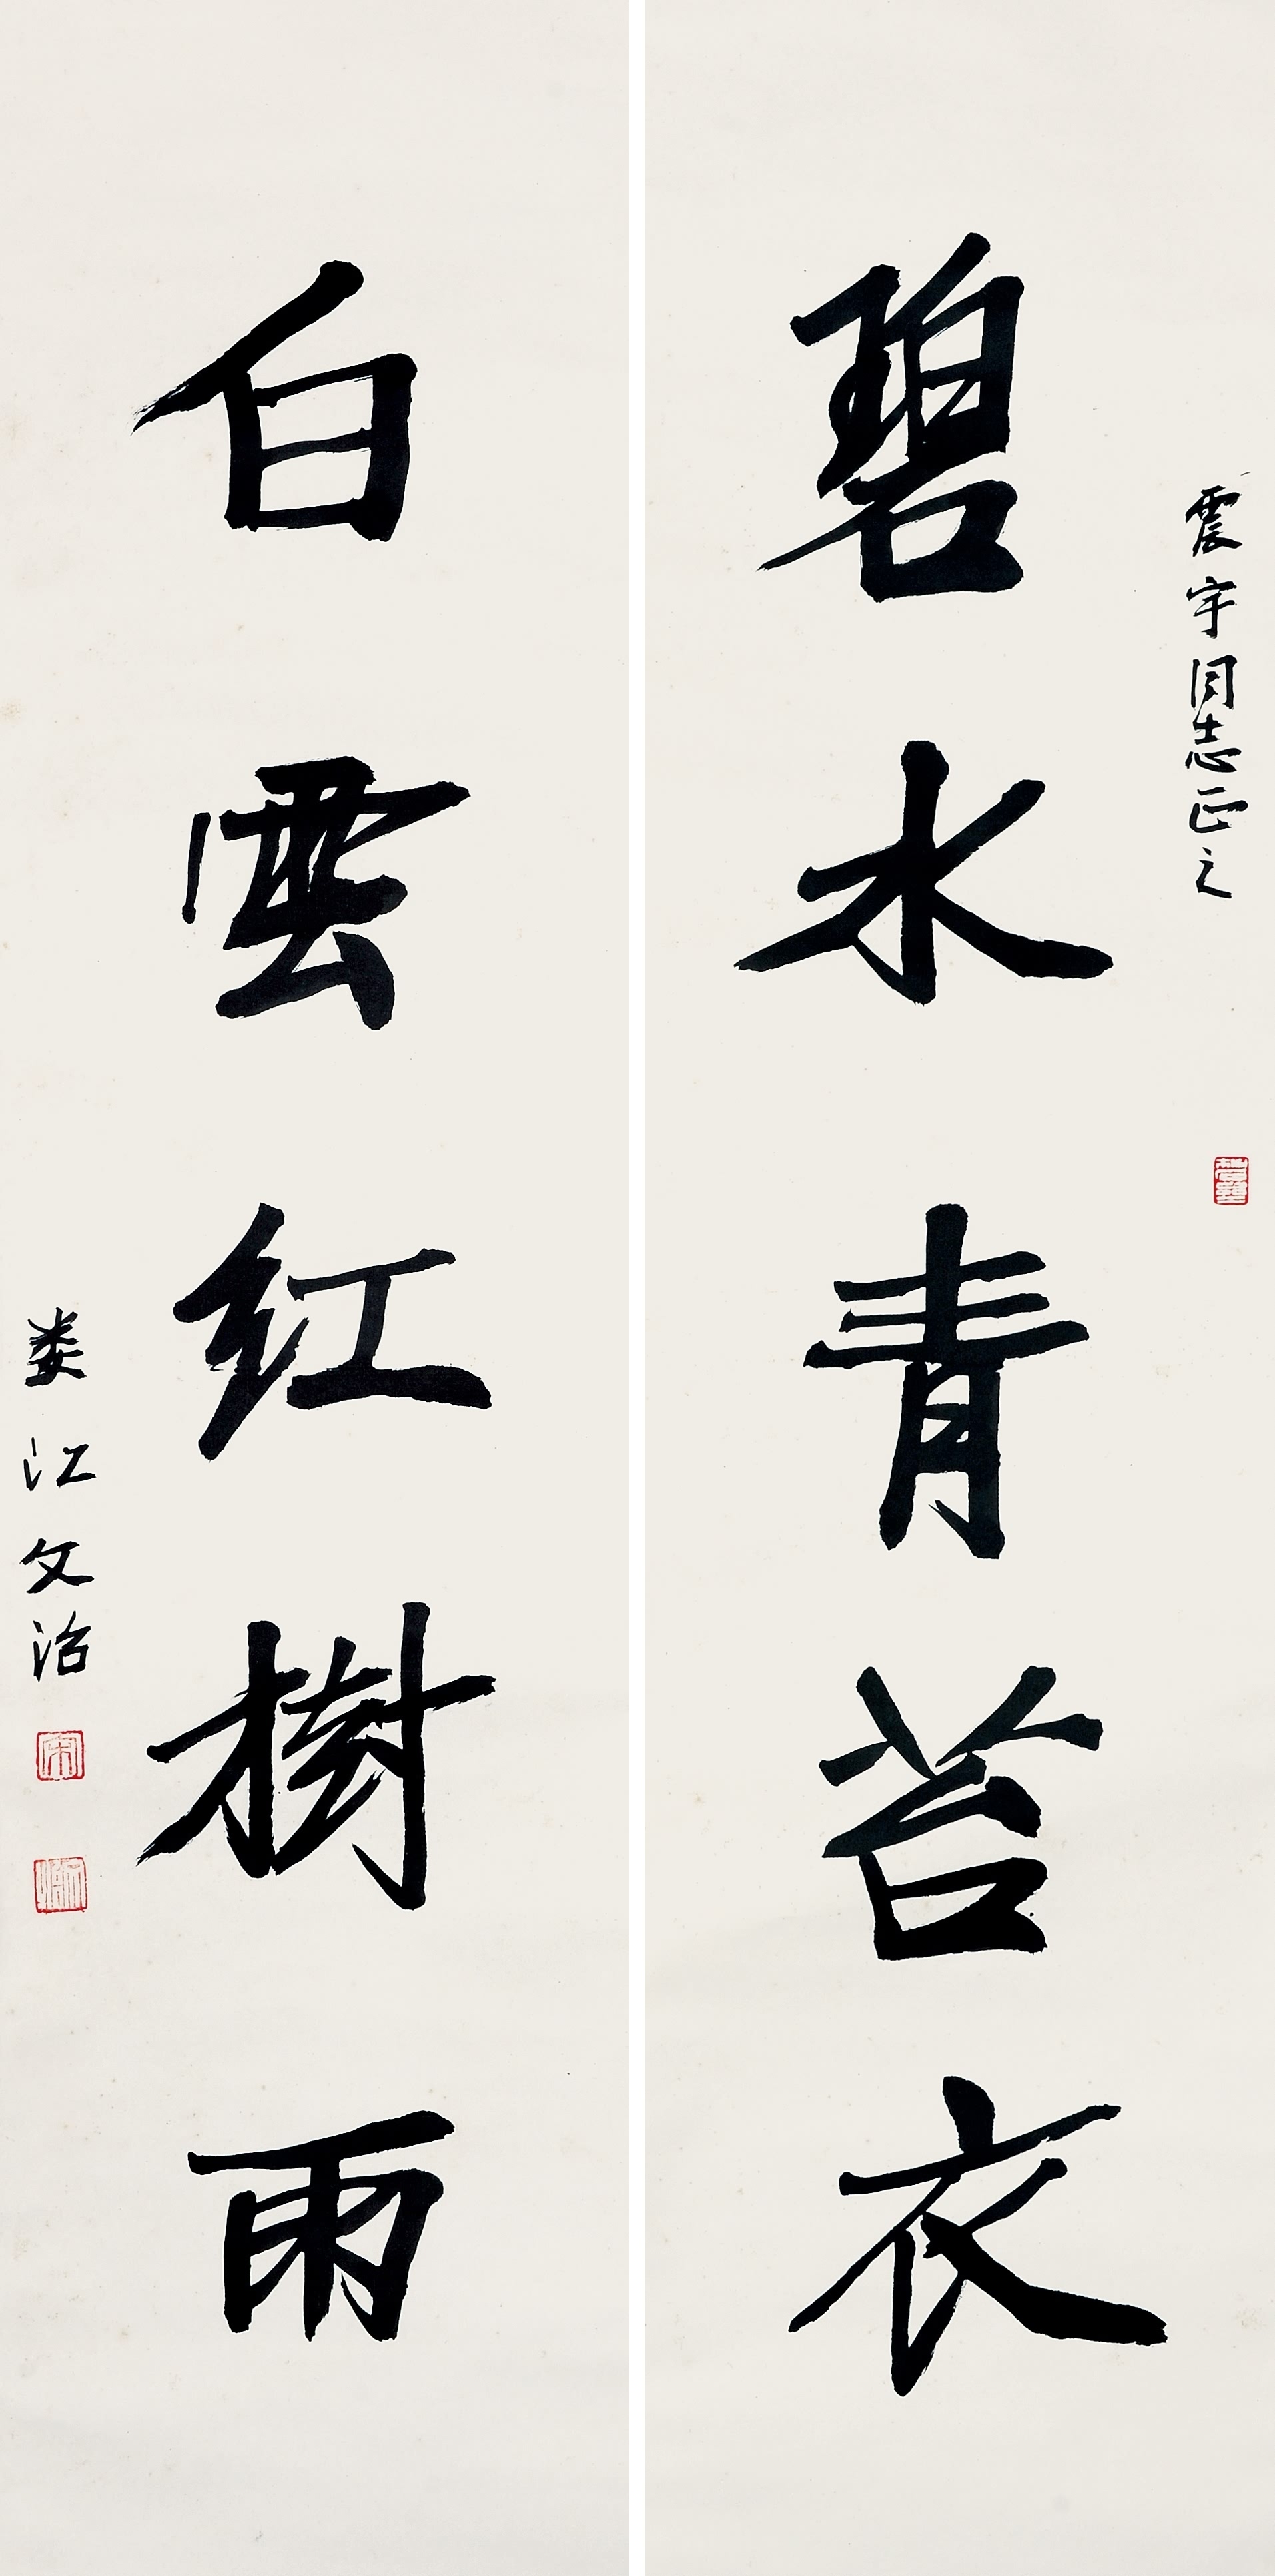 震宇同志正之
碧水青苔衣
白雲红樹雨
娄江文治